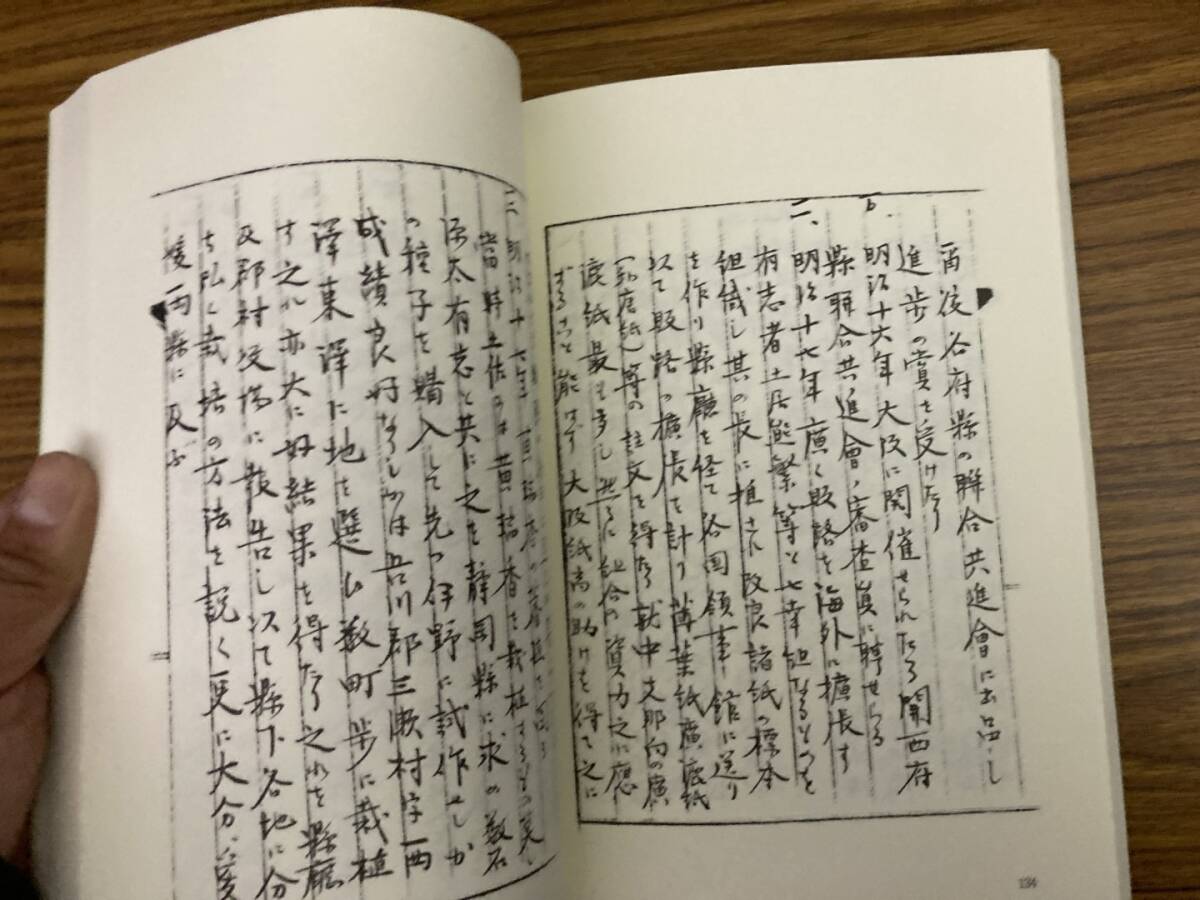 爾後各府縣の聯合共進會に出品し
進歩の賞を受けたり
6.
明治十六年大阪に開催せられたる関西府
縣聯合共進會ノ審査員に聘せらる
二、
明治十七年廣く販路を海外に擴張す
有志者土居熊繁等と七幸組なるものを
組織し其の長に推され改良諸紙の標本
を作り縣廳を経て各国領事館に送り
以て販路の擴張を計り薄葉紙廣渡紙
等の註文を得たり就中支那向の廣
渡紙最も多し然るに組合の資力之に應
ずること能はず大阪紙商の助けを得て之に
134
三、明治十七年
當時土佐
源太有志と共に之を静岡縣に求め数石
の種子を購入して先つ伊野に試作せしが
成績良好なりしかば吾川郡三瀬村字西
澤東澤に地を選び数町歩に栽植
す之れ亦大に好結果を得たり之れを縣廳
及郡村役場に報告し以て縣下各地に分
ち弘く栽培の方法を説く更に大分、愛
媛両縣に及ぶ